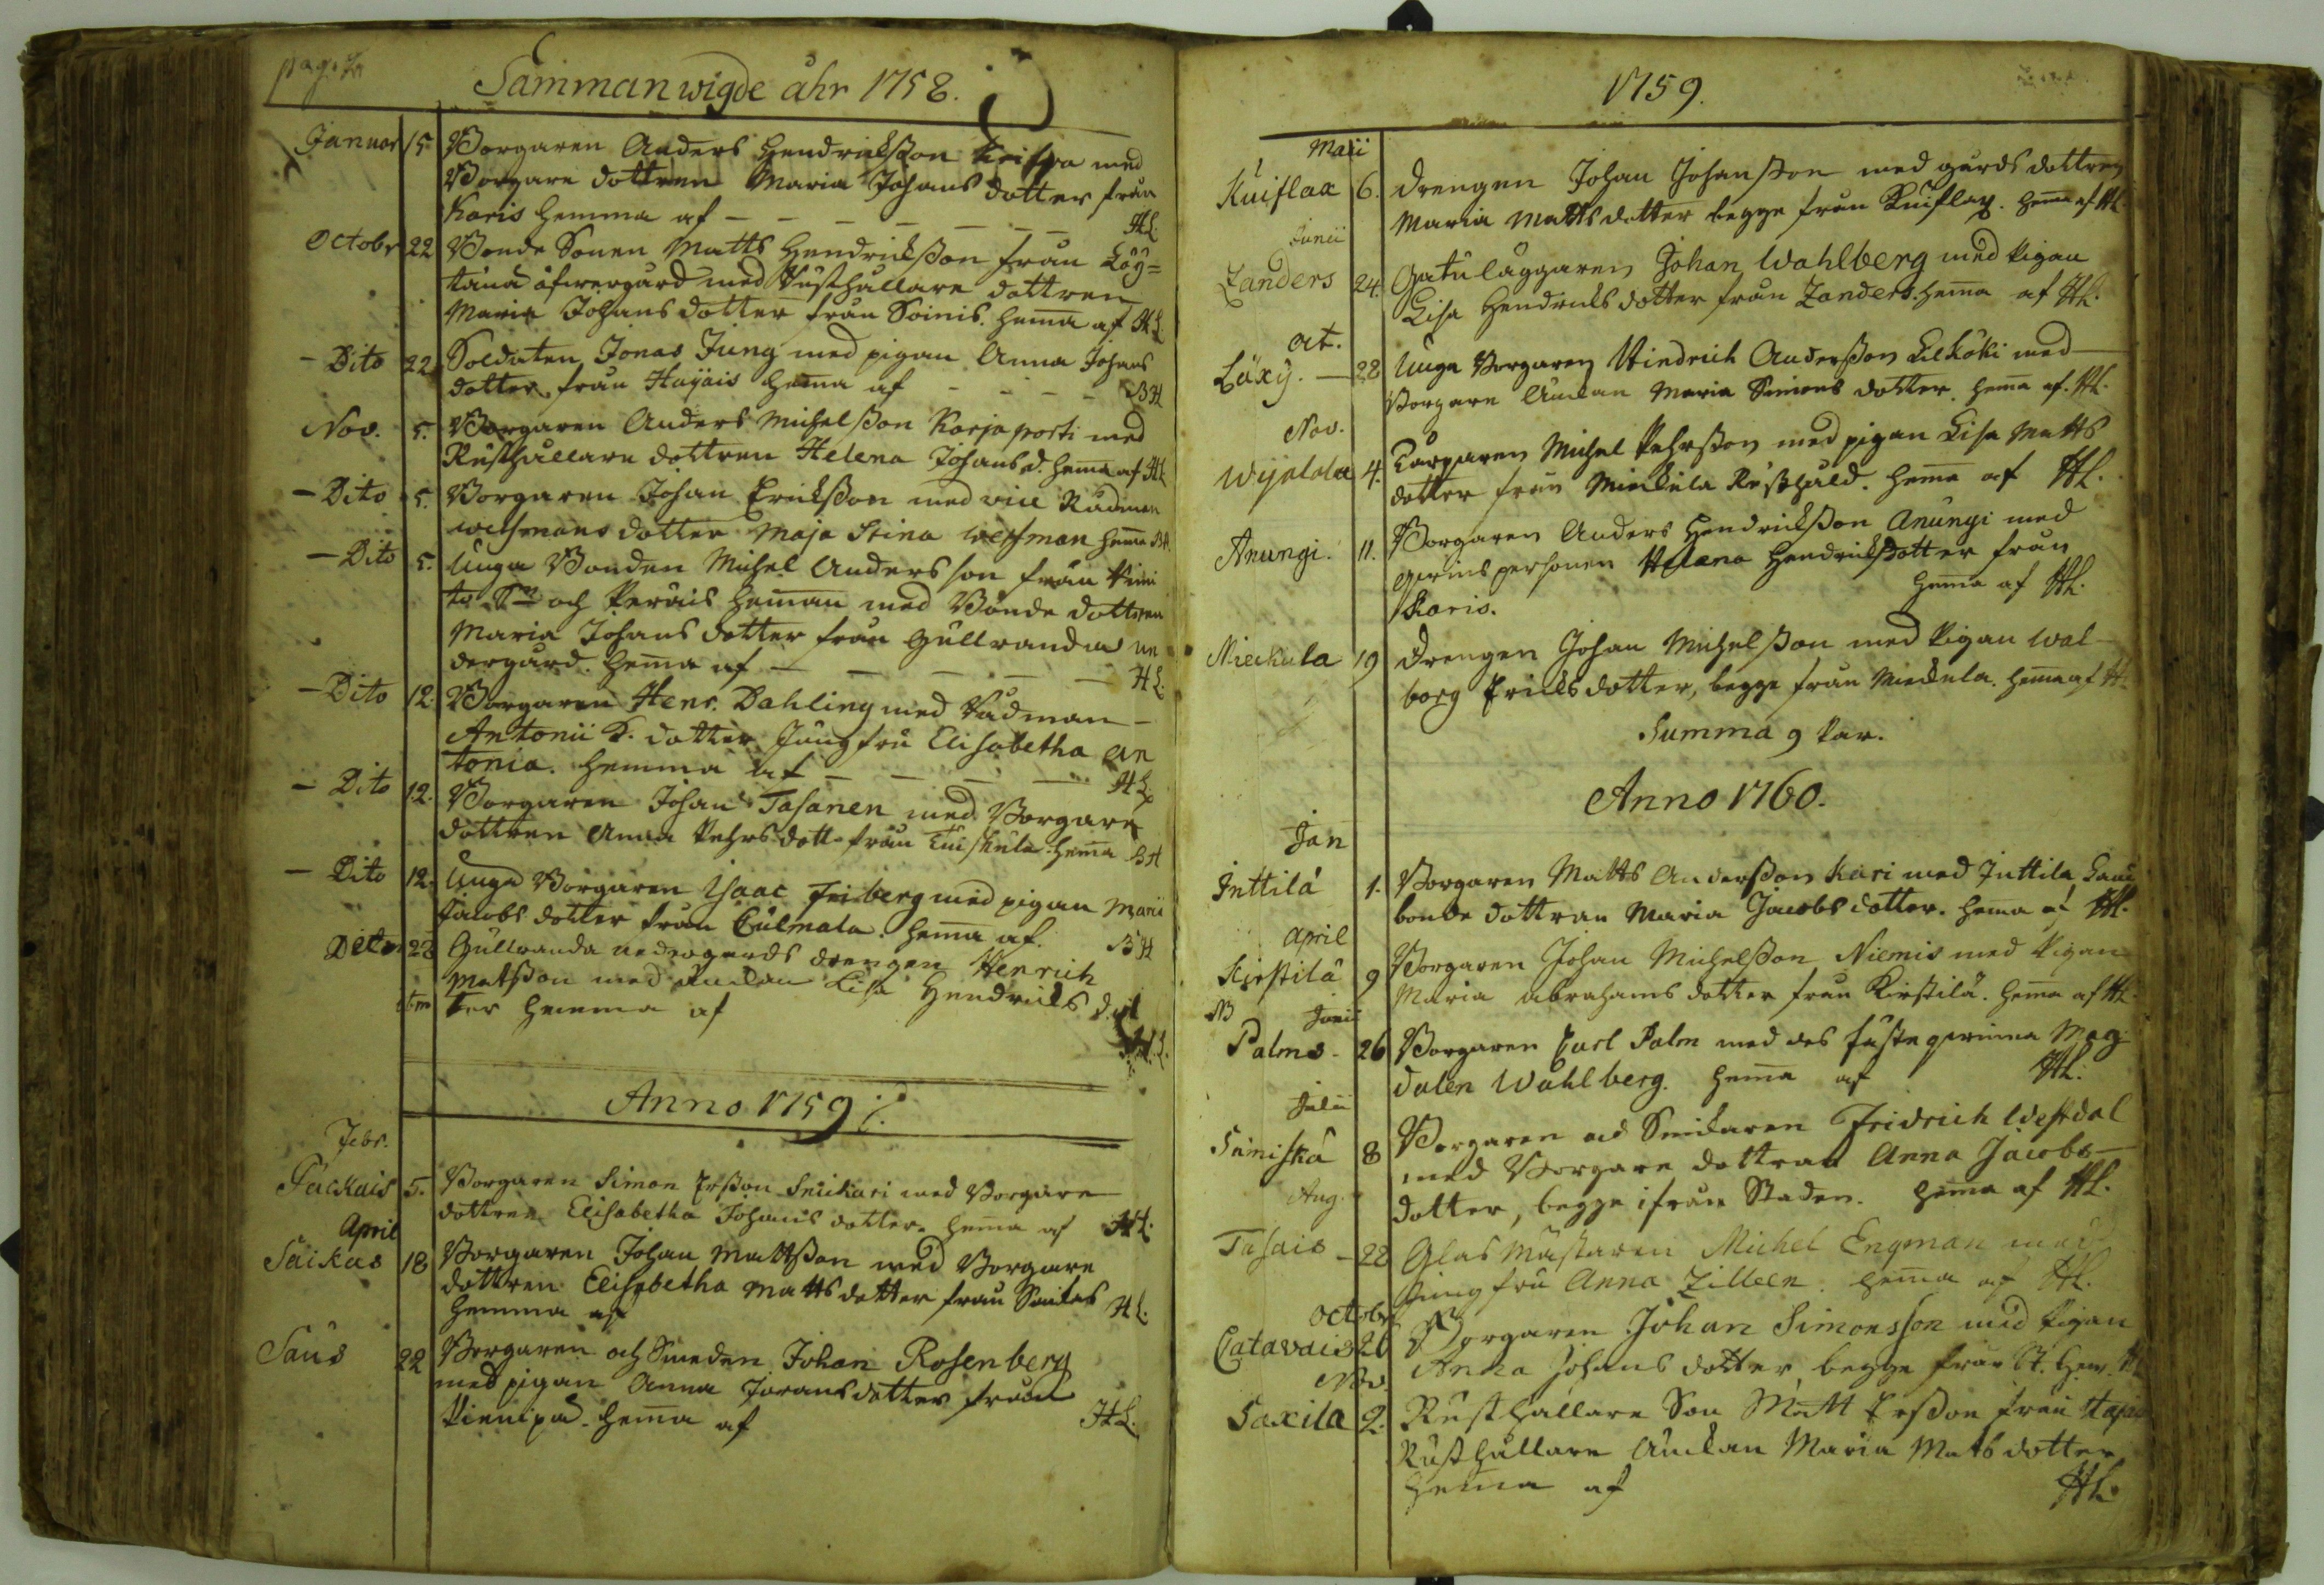 Sammanwigde åhr 1758.
Januar 15. Borgaren Anders Hendrichsson med
Borgare dottren Maria Johans dotter från
Karis hemma af HL.
Octobr 22 Bonde Sonen Matts Hendrichsson från Löy=
täinä öfwergård med Rusthållare dottren
Maria Johans dotter från Soinis. hema af HL.
- Dito 22 Soldaten Jonas Jung med pigan Anna Johans
dotter från Hayais hema af BH
Nov. 5. Borgaren Anders Michelsson Karjaporti med
Rusthållare dottren Helena Johansd. hema af HL
- Dito 5. Borgaren Johan Ericksson med vice Rådman
Westmans dotter Maja Stina Westman hema BH.
- Dito 5. Unga Bonden Michel Andersson från
och Peräis heman med Bonde dottren
Maria Johans dotter från Gullranda ne
dergård. hema af HL.
- Dito 12. Borgaren Henr. Dahling med Rådman
Antonii S. dotter Jungfru Elisabetha An
tonia. hemma af HL.
- Dito 12. Borgaren Johan Tasanen med Borgare
dottren Anna Pehrs dott. från Tuiskula. hema BH
- Dito 12. Unga Borgaren Isaac Friberg med pigan Maria
Jacobs dotter från Culmala. hema af. BH
Dito 28 Gullranda nedergårds drengen Henrich
Matsson med Enckan Lisa Hendricks dot
ter hemma af HL.
Anno 1759
Febr.
Packais 5. Borgaren Simon Ersson Snickari med Borgare
dottren Elisabetha Johans dotter. hema af HL.
April
Saikas 18 Borgaren Johan Mattsson med Borgare
dottren Elisabetha Matts dotter från Saikas
hemma af HL.
Saus 22 Borgaren och Smeden Johan Rosenberg
med pigan Anna Jörans dotter från
hema af HL.
1759.
Maii
Kuiflax 6. Drengen Johan Johansson med gårds dottren
Maria Matts dotter begge från Kuiflax. hema af HL
Junii
Zanders 24. Gatuläggaren Johan Wahlberg med Pigan
Lisa Hendrichs dotter från Zanders. hema af HL.
oct.
Luxÿ. 28 Unga Borgaren Hindrich Andersson med
Borgare Enckan Maria Simons dotter. hema af. HL.
Nov.
Wijalala 4. Torparen Michel Pehrsson med pigan Lisa Matts
dotter från Mieckula Rusthåld. hema af HL.
Anungi. 11. Borgaren Anders Hendricksson Anungi med
qwinspersonen Helena Hendrichsdotter från
Karis. hema af HL.
Mieckula 19 Drengen Johan Michelsson med Pigan Wal
borg Ericks dotter, begge från Mieckula. hema af HL.
Summa 9 Par.
Anno 1760.
Jan
Juttila 1. Borgaren Matts Andersson Kari med Juttila Land
bonde dottran Maria Jacobs dotter. hema af HL.
April
Kirstilä 9 Borgaren Johan Michelsson Niemis med Pigan
Maria Abrahams dotter från Kirstilä. hema af HL.
NB Junii
Palms - 26 Borgaren Carl Palm med des fästeqwinna Mag
dalen Wahlberg. hema af HL.
Julii
Suniska 8 Borgaren och Snickaren Fridrich Westdal
med Borgare dottran Anna Jacobs
dotter, begge ifrån Staden. hema af HL.
Aug.
Tasais - 28 Glasmästaren Michel Engman med
Jungfru Anna Zilleen. hema af HL.
Octobr
Catavais 26 Borgaren Johan Simonsson med Pigan
Anna Johans dotter, begge från
Nov.
Saxila 2. Rusthållare Son Matt Ersson från
Rusthållare Enckan Maria Mats dotter
hema af HL.